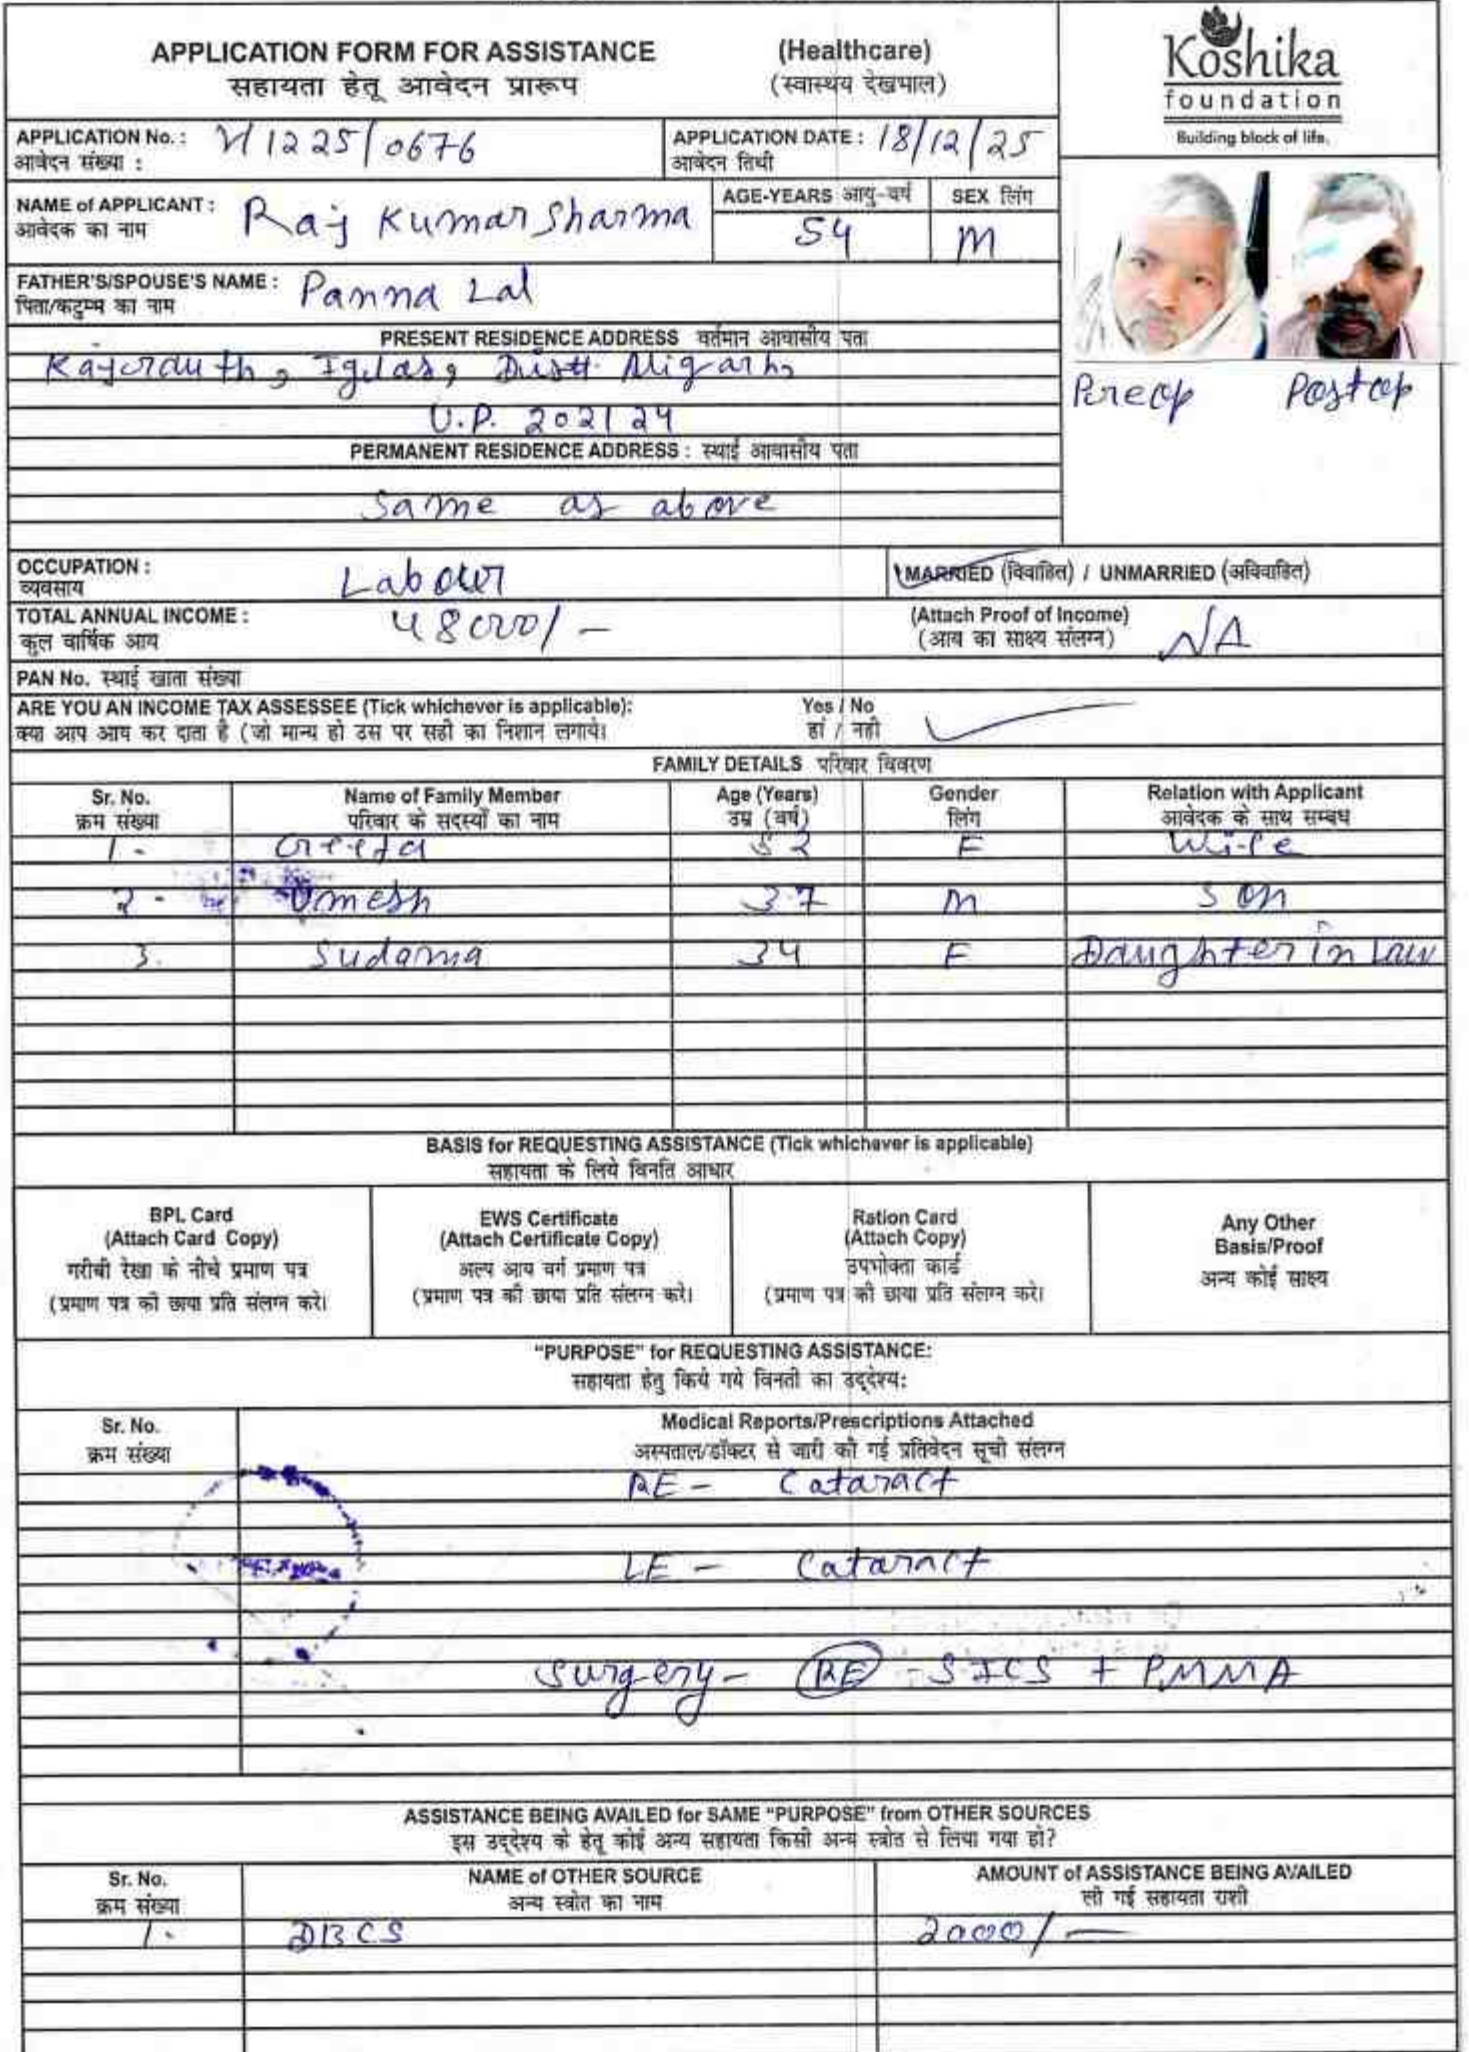 APPLICATION FORM FOR ASSISTANCE (Healthcare)
सहायता हेतू आवेदन प्रारूप (स्वास्थय देखभाल)
Koshika
foundation
Building block of life.
APPLICATION No. : APPLICATION DATE : 18/12/25
आवेदन संख्या : 1225/0676 आवेदन तिथी
NAME of APPLICANT : Raj Kumar Sharma AGE-YEARS आयु-वर्ष SEX लिंग
आवेदक का नाम 54 M
FATHER'S/SPOUSE'S NAME : Panna Lal
पिता/कटुम्म का नाम
PRESENT RESIDENCE ADDRESS वर्तमान आवासीय पता
Iglas, Distt. Aligarh,
U.P. 202124
Preop Postop
PERMANENT RESIDENCE ADDRESS : स्थाई आवासीय पता
Same as above
OCCUPATION : Labour MARRIED (विवाहित) / UNMARRIED (अविवाहित)
व्यवसाय
TOTAL ANNUAL INCOME : 48000/- (Attach Proof of Income) NA
कुल वार्षिक आय (आय का साक्ष्य संलग्न)
PAN No. स्थाई खाता संख्या
ARE YOU AN INCOME TAX ASSESSEE (Tick whichever is applicable): Yes / No
क्या आप आय कर दाता है (जो मान्य हो उस पर सही का निशान लगाये। हां / नही
FAMILY DETAILS परिवार विवरण
Sr. No. Name of Family Member Age (Years) Gender Relation with Applicant
क्रम संख्या परिवार के सदस्यों का नाम उम्र (वर्ष) लिंग आवेदक के साथ सम्बध
1- Geeta 52 F Wife
2- Umesh 37 M Son
3. Sudama 34 F Daughter in Law
BASIS for REQUESTING ASSISTANCE (Tick whichever is applicable)
सहायता के लिये विनति आधार
BPL Card
(Attach Card Copy)
गरीबी रेखा के नीचे प्रमाण पत्र
(प्रमाण पत्र की छाया प्रति संलग्न करे।
EWS Certificate
(Attach Certificate Copy)
अल्प आय वर्ग प्रमाण पत्र
(प्रमाण पत्र की छाया प्रति संलग्न करे।
Ration Card
(Attach Copy)
उपभोक्ता कार्ड
(प्रमाण पत्र की छाया प्रति संलग्न करे।
Any Other
Basis/Proof
अन्य कोई साक्ष्य
"PURPOSE" for REQUESTING ASSISTANCE:
सहायता हेतु किये गये विनती का उद्देश्य:
Sr. No. Medical Reports/Prescriptions Attached
क्रम संख्या अस्पताल/डॉक्टर से जारी की गई प्रतिवेदन सूची संलग्न
RE - Cataract
LE - Cataract
Surgery - RE - SICS + PMMA
ASSISTANCE BEING AVAILED for SAME "PURPOSE" from OTHER SOURCES
इस उद्देश्य के हेतू कोई अन्य सहायता किसी अन्य स्त्रोत से लिया गया हो?
Sr. No. NAME of OTHER SOURCE AMOUNT of ASSISTANCE BEING AVAILED
क्रम संख्या अन्य स्त्रोत का नाम ली गई सहायता राशी
1. DBCS 2000/-